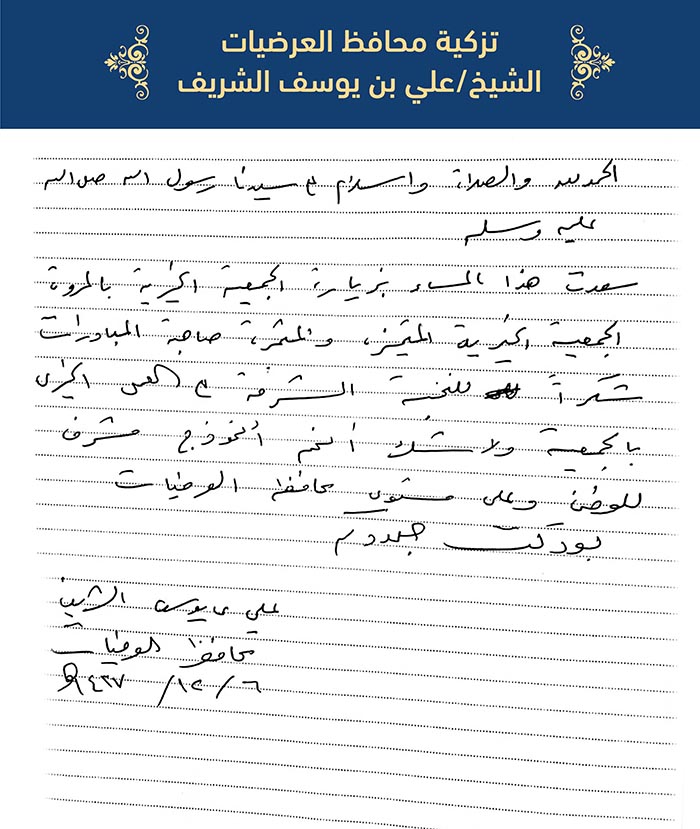 تزكية محافظ العرضيات
الشيخ/علي بن يوسف الشريف
الحمد لله والصلاة والسلام على سيدنا رسول الله صلى الله
عليه وسلم
سعدت هذا المساء بزيارة الجمعية الخيرية بالمروة
الجمعية الخيرية المتميزة والمثمرة صاحبة المبادرات
شكراً للنخبة المشرفة على العمل الخيري
بالجمعية ولا شك أنكم أنموذج مشرف
للوطن وعلى مستوى محافظة العرضيات
بوركت جهودكم
علي بن يوسف الشريف
محافظ العرضيات
٦ / ١٢ / ١٤٣٧هـ